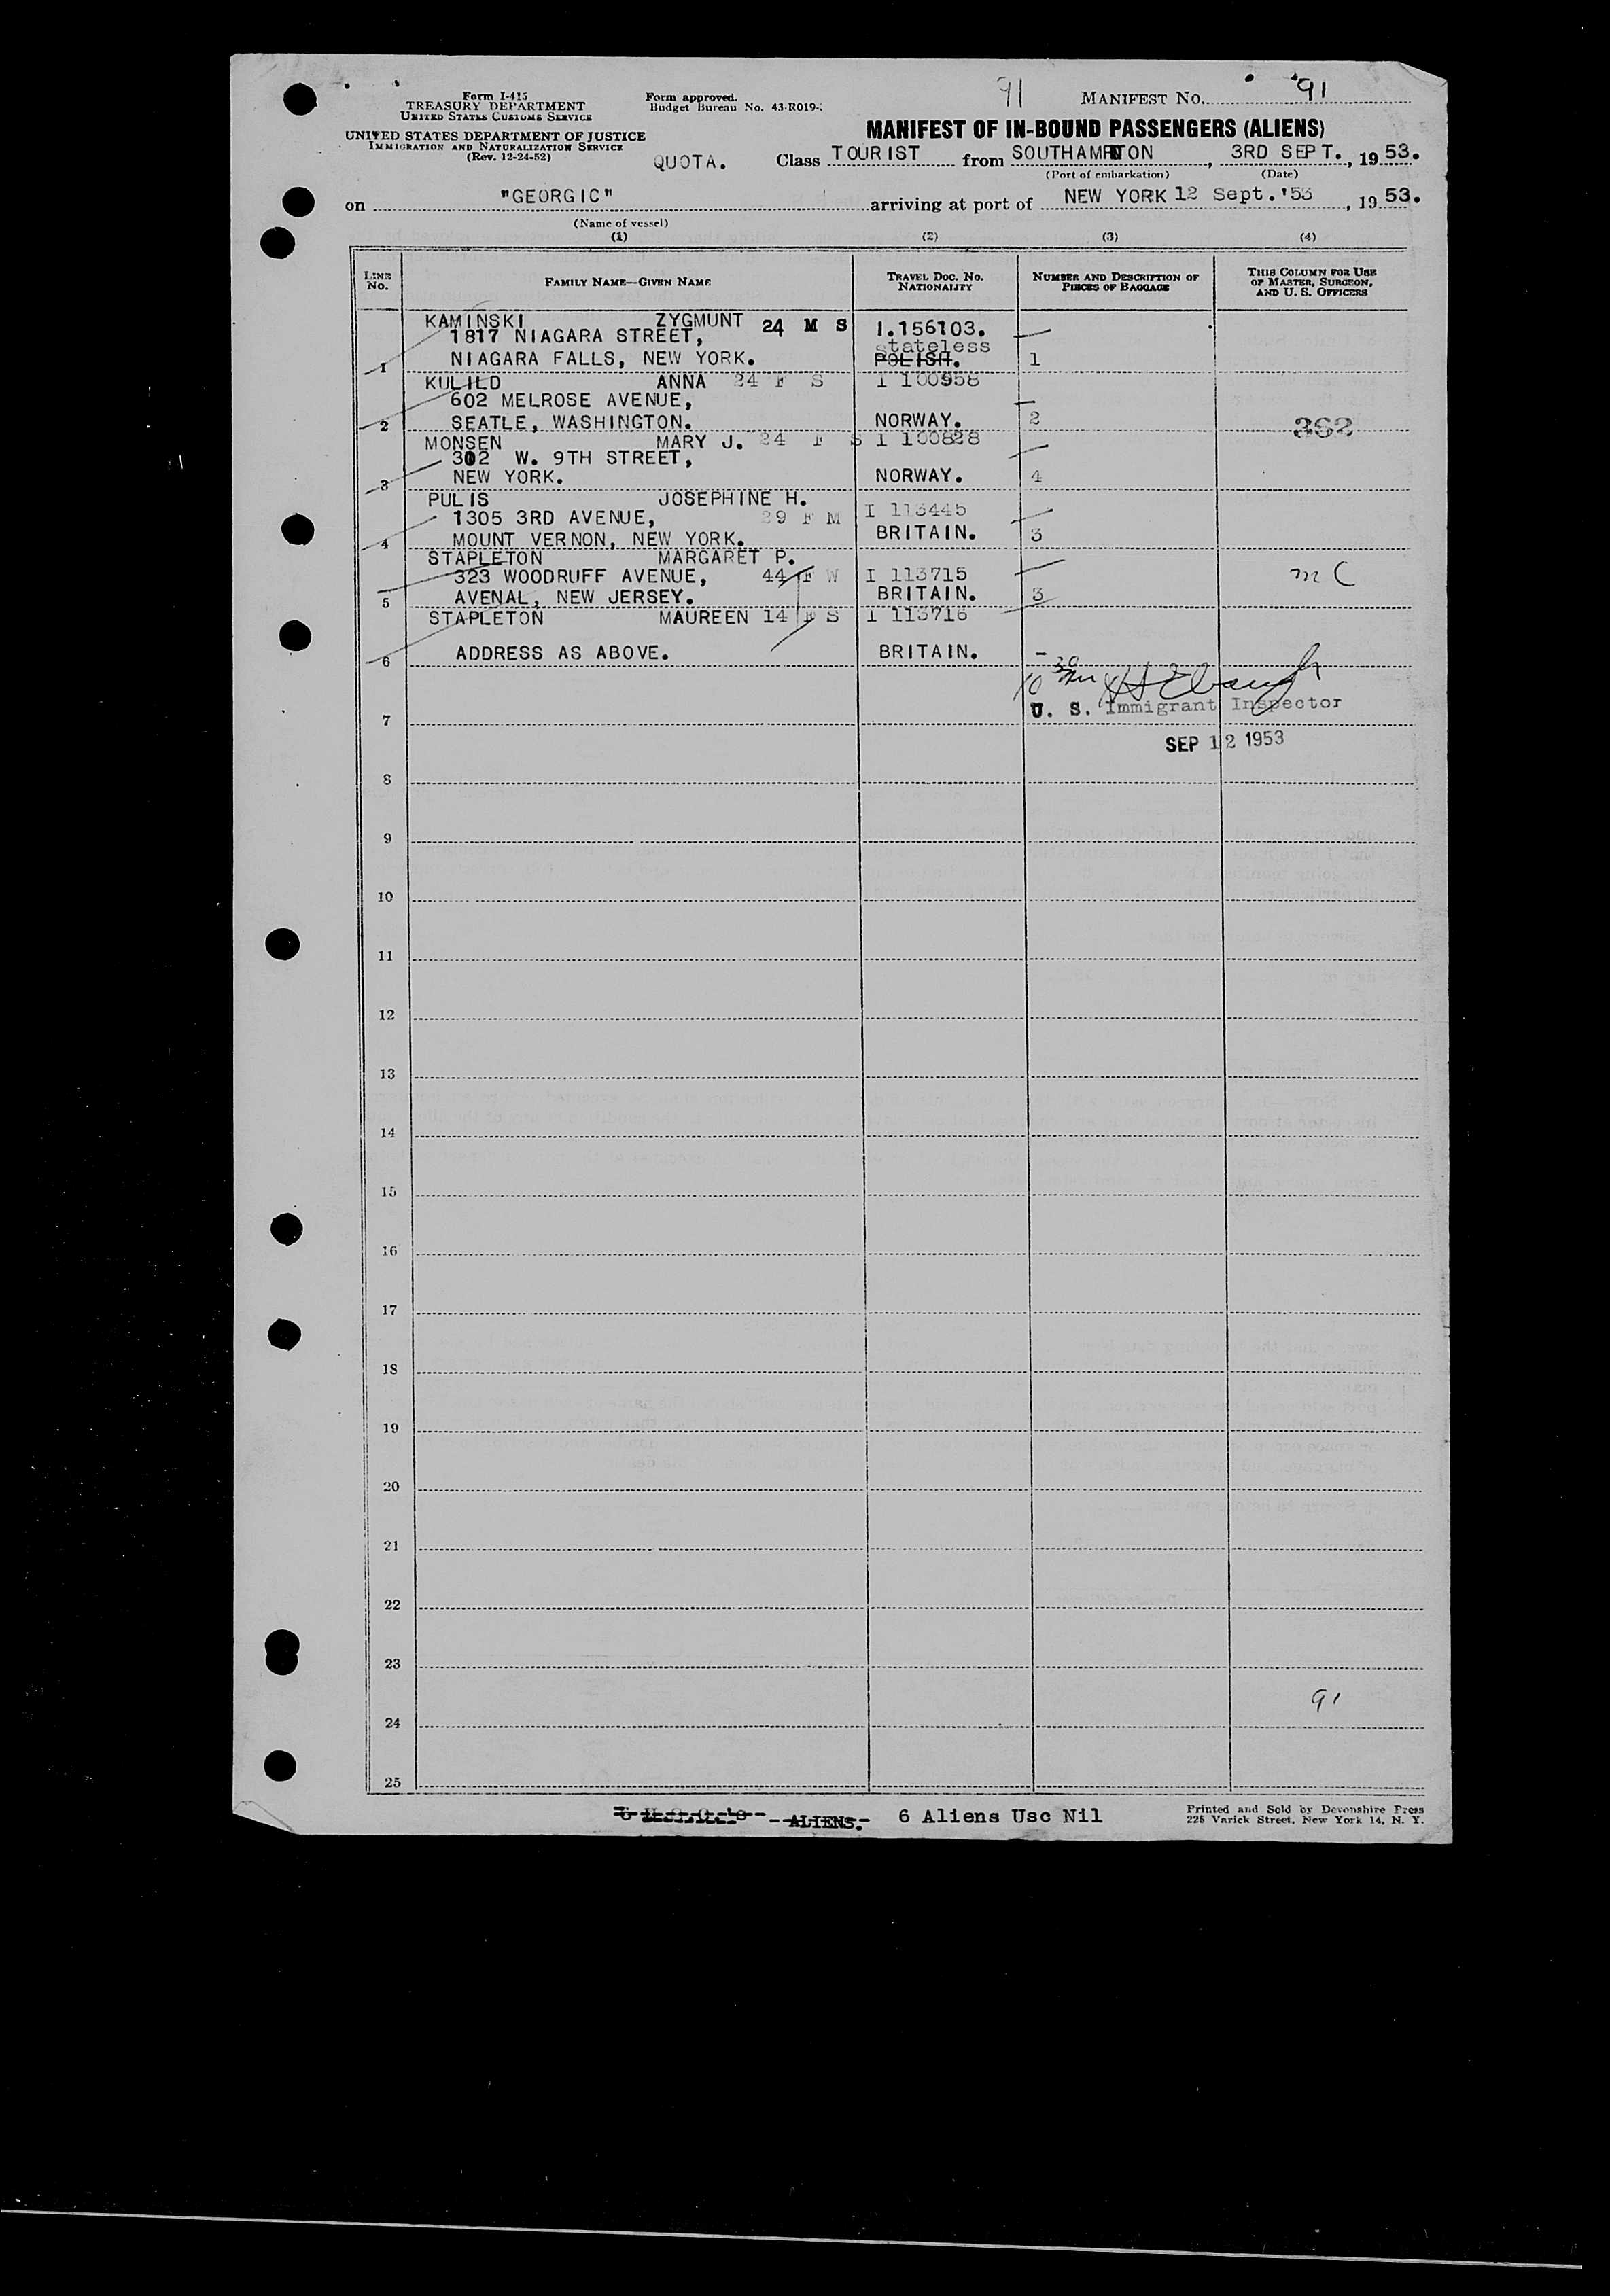 91
MANIFEST NO. 91
Form I-415
TREASURY DEPARTMENT
UNITED STATES CUSTOMS SERVICE
Form approved.
Budget Bureau No. 43-R019-
UNITED STATES DEPARTMENT OF JUSTICE
IMMIGRATION AND NATURALIZATION SERVICE
(Rev. 12-24-52)
MANIFEST OF IN-BOUND PASSENGERS (ALIENS)
QUOTA. Class TOURIST from SOUTHAMPTON, 3RD SEPT., 19 53.
(Port of embarkation) (Date)
on "GEORGIC" arriving at port of NEW YORK 12 Sept. '53, 19 53.
(Name of vessel)
(1) (2) (3) (4)
LINE No. FAMILY NAME—GIVEN NAME TRAVEL DOC. NO. NATIONALITY NUMBER AND DESCRIPTION OF PIECES OF BAGGAGE THIS COLUMN FOR USE OF MASTER, SURGEON, AND U. S. OFFICERS
KAMINSKI ZYGMUNT 24 M S I.156103.
1817 NIAGARA STREET, stateless
1 NIAGARA FALLS, NEW YORK. POLISH. 1
KULILD ANNA 24 F S I 100958
602 MELROSE AVENUE,
2 SEATLE, WASHINGTON. NORWAY. 2 362
MONSEN MARY J. 24 F S I 100828
302 W. 9TH STREET,
3 NEW YORK. NORWAY. 4
PULIS JOSEPHINE H.
1305 3RD AVENUE, 29 F M I 113445
4 MOUNT VERNON, NEW YORK. BRITAIN. 3
STAPLETON MARGARET P.
323 WOODRUFF AVENUE, 44 F W I 113715 m C
5 AVENAL, NEW JERSEY. BRITAIN. 3
STAPLETON MAUREEN 14 F S I 113716
6 ADDRESS AS ABOVE. BRITAIN. -
10 30
U. S. Immigrant Inspector
7
SEP 12 1953
8
9
10
11
12
13
14
15
16
17
18
19
20
21
22
23
91
24
25
ALIENS. 6 Aliens Usc Nil
Printed and Sold by Devonshire Press
225 Varick Street, New York 14, N. Y.